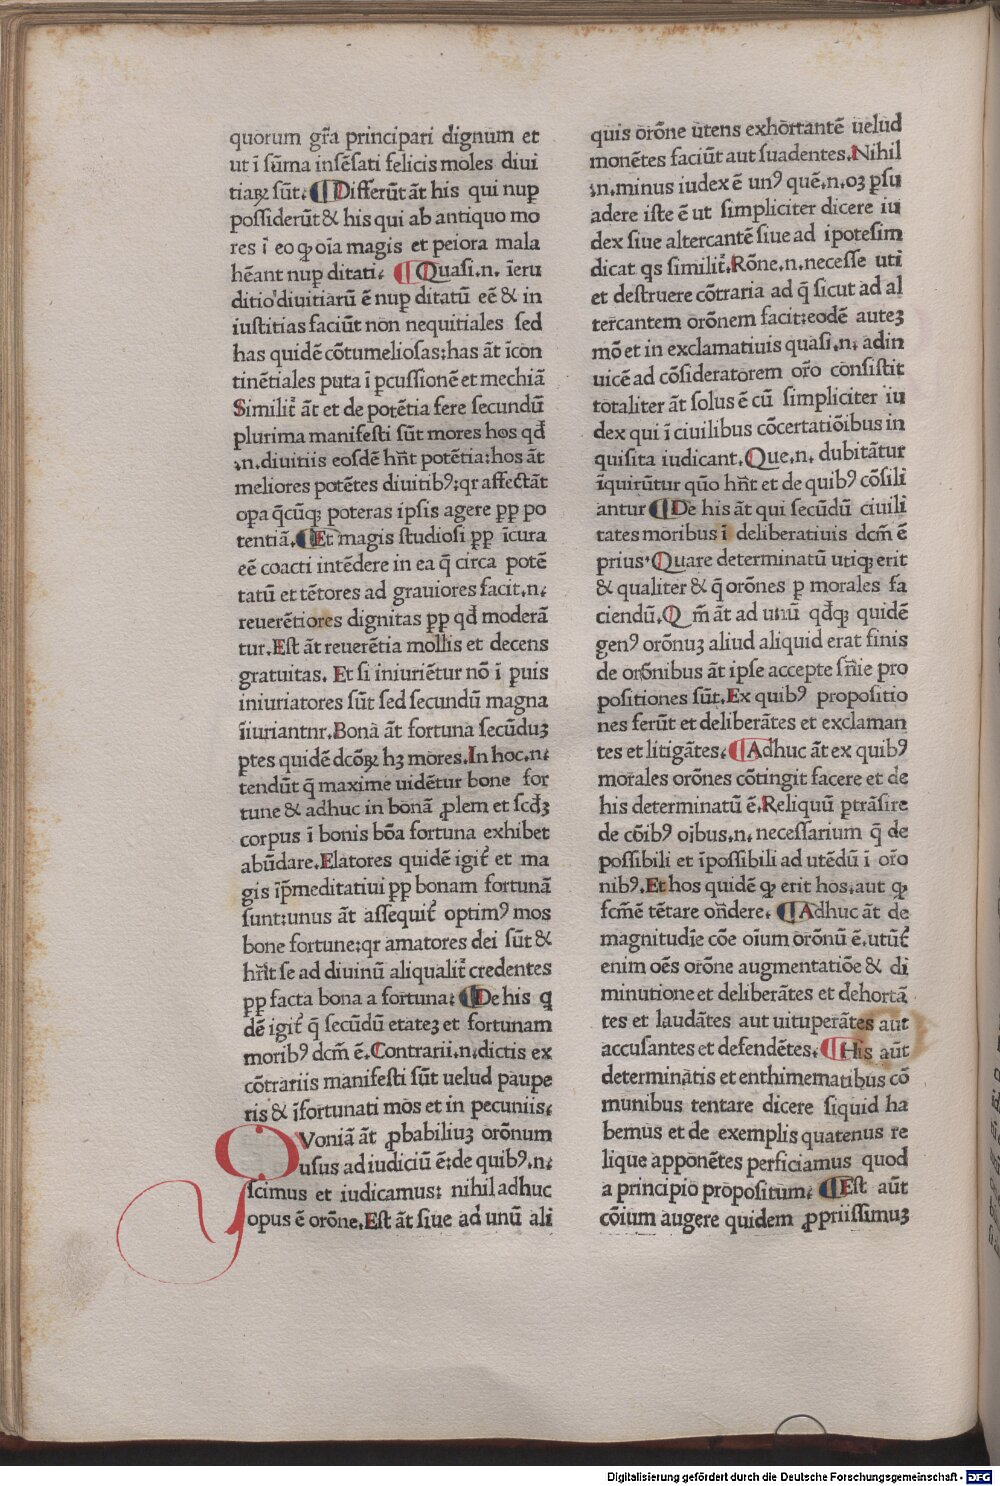 quorum gr̃a principari dignum et
ut ī sūma insēsati felicis moles diui
tiaꝝ sūt. Differūt āt his qui nup̄
possiderūt & his qui ab antiquo mo
res ī eo qꝫ oīa magis et peiora mala
hēant nup̄ ditati. Quasi.n. īeru
ditio diuitiarū ē nup̄ ditatū eē & in
iustitias faciūt non nequitiales sed
has quidē cōtumeliosas:has āt īcon
tinētiales puta ī ꝑcussionē et mechiā
Similit̃ āt et de potētia fere secundū
plurima manifesti sūt mores hos qđ
.n.diuitiis eosdē hñt potētia:hos āt
meliores potētes diuitibꝰ:qr affectāt
oꝑa q̄cūqꝫ poteras ipsis agere ꝓꝑ po
tentiā. Et magis studiosi ꝓꝑ īcura
eē coacti intēdere in ea q̄ circa potē
tatū et tētores ad grauiores facit.n.
reuerētiores dignitas ꝓꝑ qđ moderā
tur. Est āt reuerētia mollis et decens
gratuitas. Et si iniuriētur nō ī puis
iniuriatores sūt sed secundū magna
īiuriantnr. Bona āt fortuna secūduꝫ
ꝑtes quidē dcōꝝ hꝫ mores. In hoc.n.
tendūt q̄ maxime uidētur bone for
tune & adhuc in bonā ꝓlem et scđꝫ
corpus ī bonis bōa fortuna exhibet
abūdare. Elatores quidē igit̃ et ma
gis īp̄meditatiui ꝓꝑ bonam fortunā
sunt:unus āt assequit̃ optimꝰ mos
bone fortune:qr amatores dei sūt &
hñt se ad diuinū aliqualit̃ credentes
ꝓꝑ facta bona a fortuna: De his q
dē igit̃ q̄ secūdū etateꝫ et fortunam
moribꝰ dcm̄ ē. Contrarii.n.dictis ex
cōtrariis manifesti sūt uelud paupe
ris & īfortunati mos et in pecuniis.
QVoniā āt ꝓbabiliuꝫ orōnum
usus ad iudiciū ē:de quibꝰ.n.
scimus et iudicamus: nihil adhuc
opus ē orōne. Est āt siue ad unū ali
quis orōne utens exhortantē uelud
monētes faciūt aut suadentes. Nihil
.n.minus iudex ē unꝰ quē.n.oꝫ ꝑsu
adere iste ē ut simpliciter dicere iu
dex siue altercantē siue ad ipotesim
dicat qs similit̃. Rōne.n.necesse uti
et destruere cōtraria ad q̄ sicut ad al
tercantem orōnem facit:eodē auteꝫ
mō et in exclamatiuis quasi.n. adin
uicē ad cōsideratorem or̄o consistit
totaliter āt solus ē cū simpliciter iu
dex qui ī ciuilibus cōcertatiōibus in
quisita iudicant. Que.n. dubitātur
īquirūtur quō hñt et de quibꝰ cōsili
antur De his āt qui secūdū ciuili
tates moribus ī deliberatiuis dcm̄ ē
prius. Quare determinatū utiqꝫ erit
& qualiter & q̄ orōnes p morales fa
ciendū. Qm̄ āt ad unū qđqꝫ quidē
genꝰ orōnuꝫ aliud aliquid erat finis
de orōnibus āt ipse accepte sn̄ie pro
positiones sūt. Ex quibꝰ propositio
nes ferūt et deliberātes et exclaman
tes et litigātes. Adhuc āt ex quibꝰ
morales orōnes cōtingit facere et de
his determinatū ē. Reliquū ꝑtrāsire
de cōibꝰ oībus.n. necessarium q̄ de
possibili et īpossibili ad utēdū ī or̄o
nibꝰ. Et hos quidē qꝫ erit hos.aut qꝫ
fcm̄ē tētare on̄dere. Adhuc āt de
magnitudīe cōe oīum orōnū ē.utūt̃
enim oēs orōne augmentatiōe & di
minutione et deliberātes et dehortā
tes et laudātes aut uituperātes aut
accusantes et defendētes. His aūt
determinatis et enthimematibus cō
munibus tentare dicere siquid ha
bemus et de exemplis quatenus re
lique apponētes perficiamus quod
a principio propositum. Est aūt
cōium augere quidem ꝓpriissimuꝫ
Digitalisierung gefördert durch die Deutsche Forschungsgemeinschaft - DFG